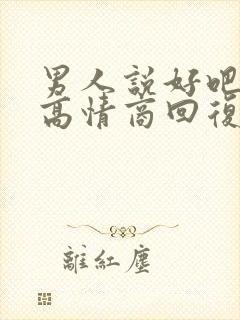 男人説好吧
高情商回復
離紅塵